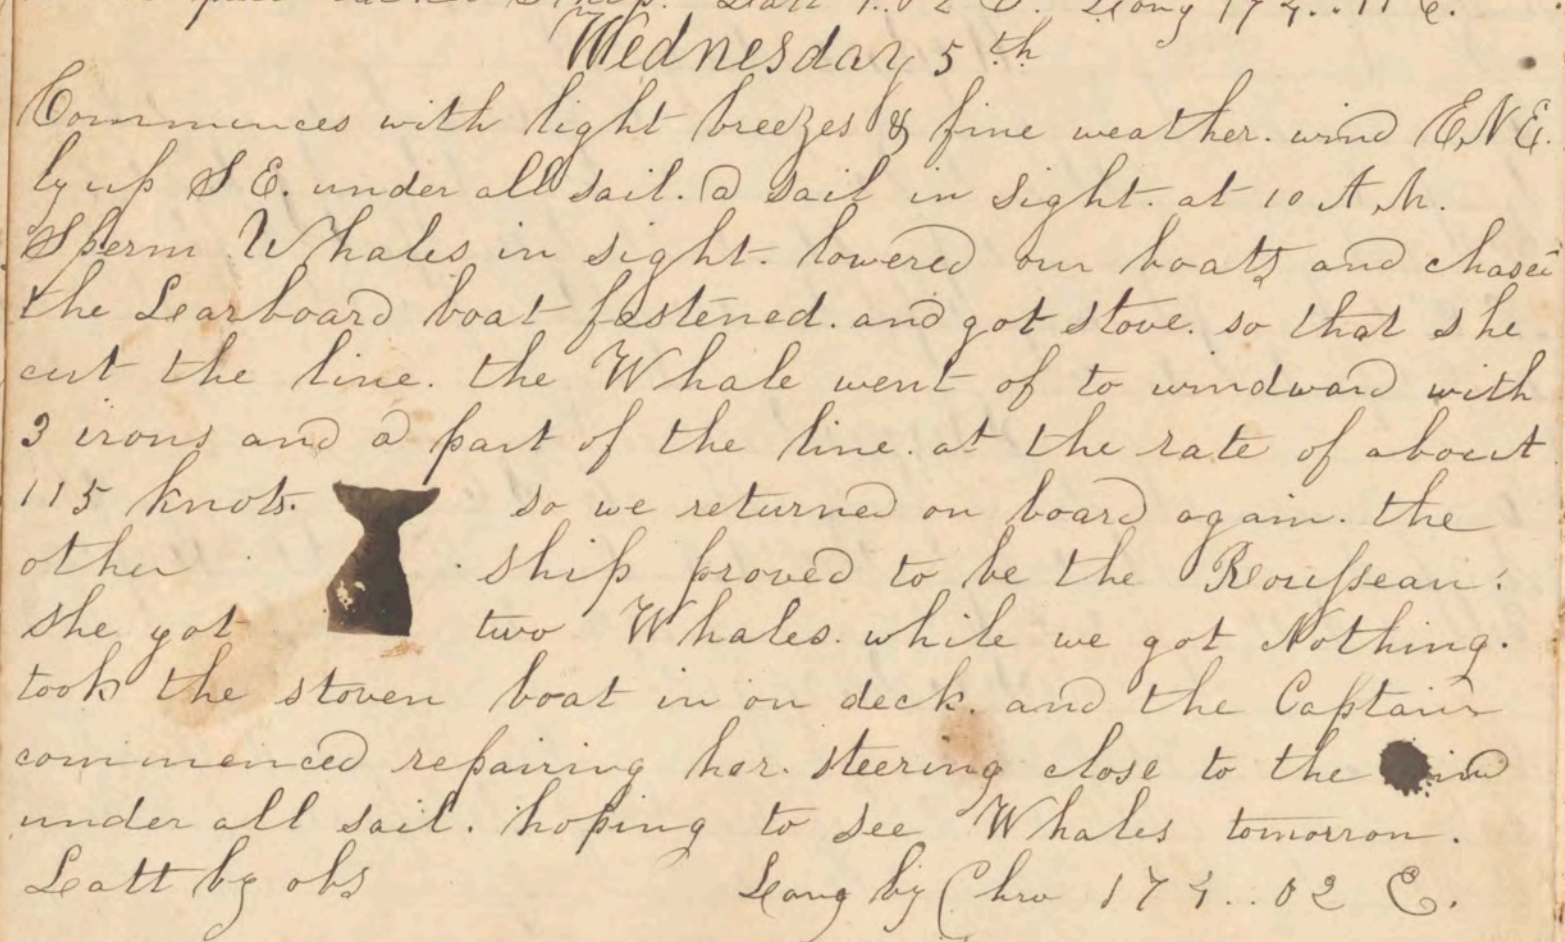 Latt 1..02 S. Long 174..11 E.
Wednesday 5th
Commences with light breezes & fine weather. wind E.N.E.
by up S E. under all sail. a sail in sight. at 10 A.M.
Sperm Whales in sight. lowered our boats and chased
the Learboard boat fastened. and got stove. so that she
cut the line. the Whale went of to windward with
3 irons and a part of the line. at the rate of about
115 knots. so we returned on board again. the
other ship proved to be the Rousseau.
she got two Whales. while we got Nothing.
took the stoven boat in on deck. and the Captain
commenced repairing her. steering close to the wind
under all sail. hoping to see Whales tomorron.
Latt by obs Long by Chro 174..02 E.